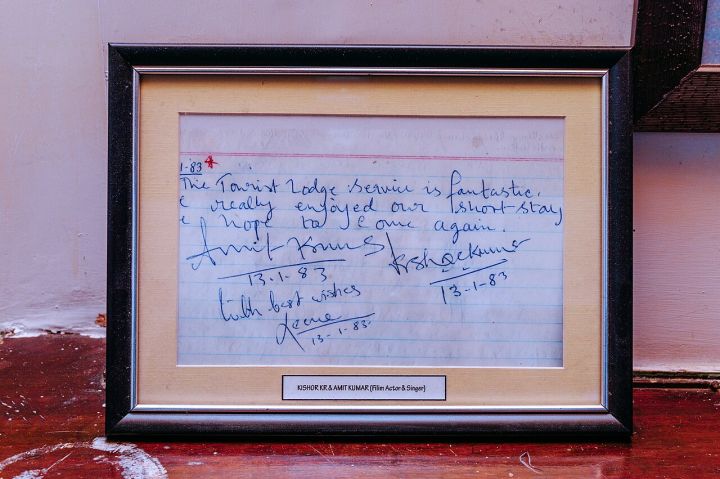 1-83
The Tourist Lodge service is fantastic.
e really enjoyed our short stay
e hope to come again.
Amit Kumar
13.1.83
Kishore Kumar
13-1-83
With best wishes
Leena
13-1-83.
KISHOR KR & AMIT KUMAR (Filim Actor & Singer)